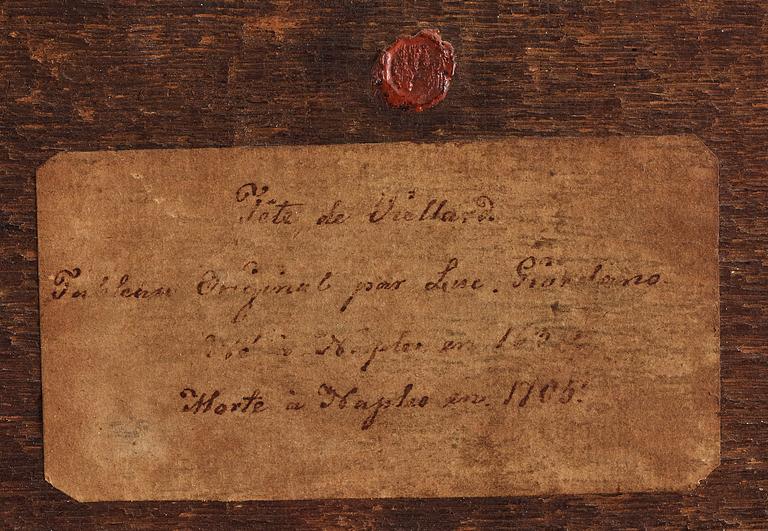 Tête de Viellard
Tableau Original par Luc. Giordano.
Né à Naples en
Morte à Naples en. 1705.